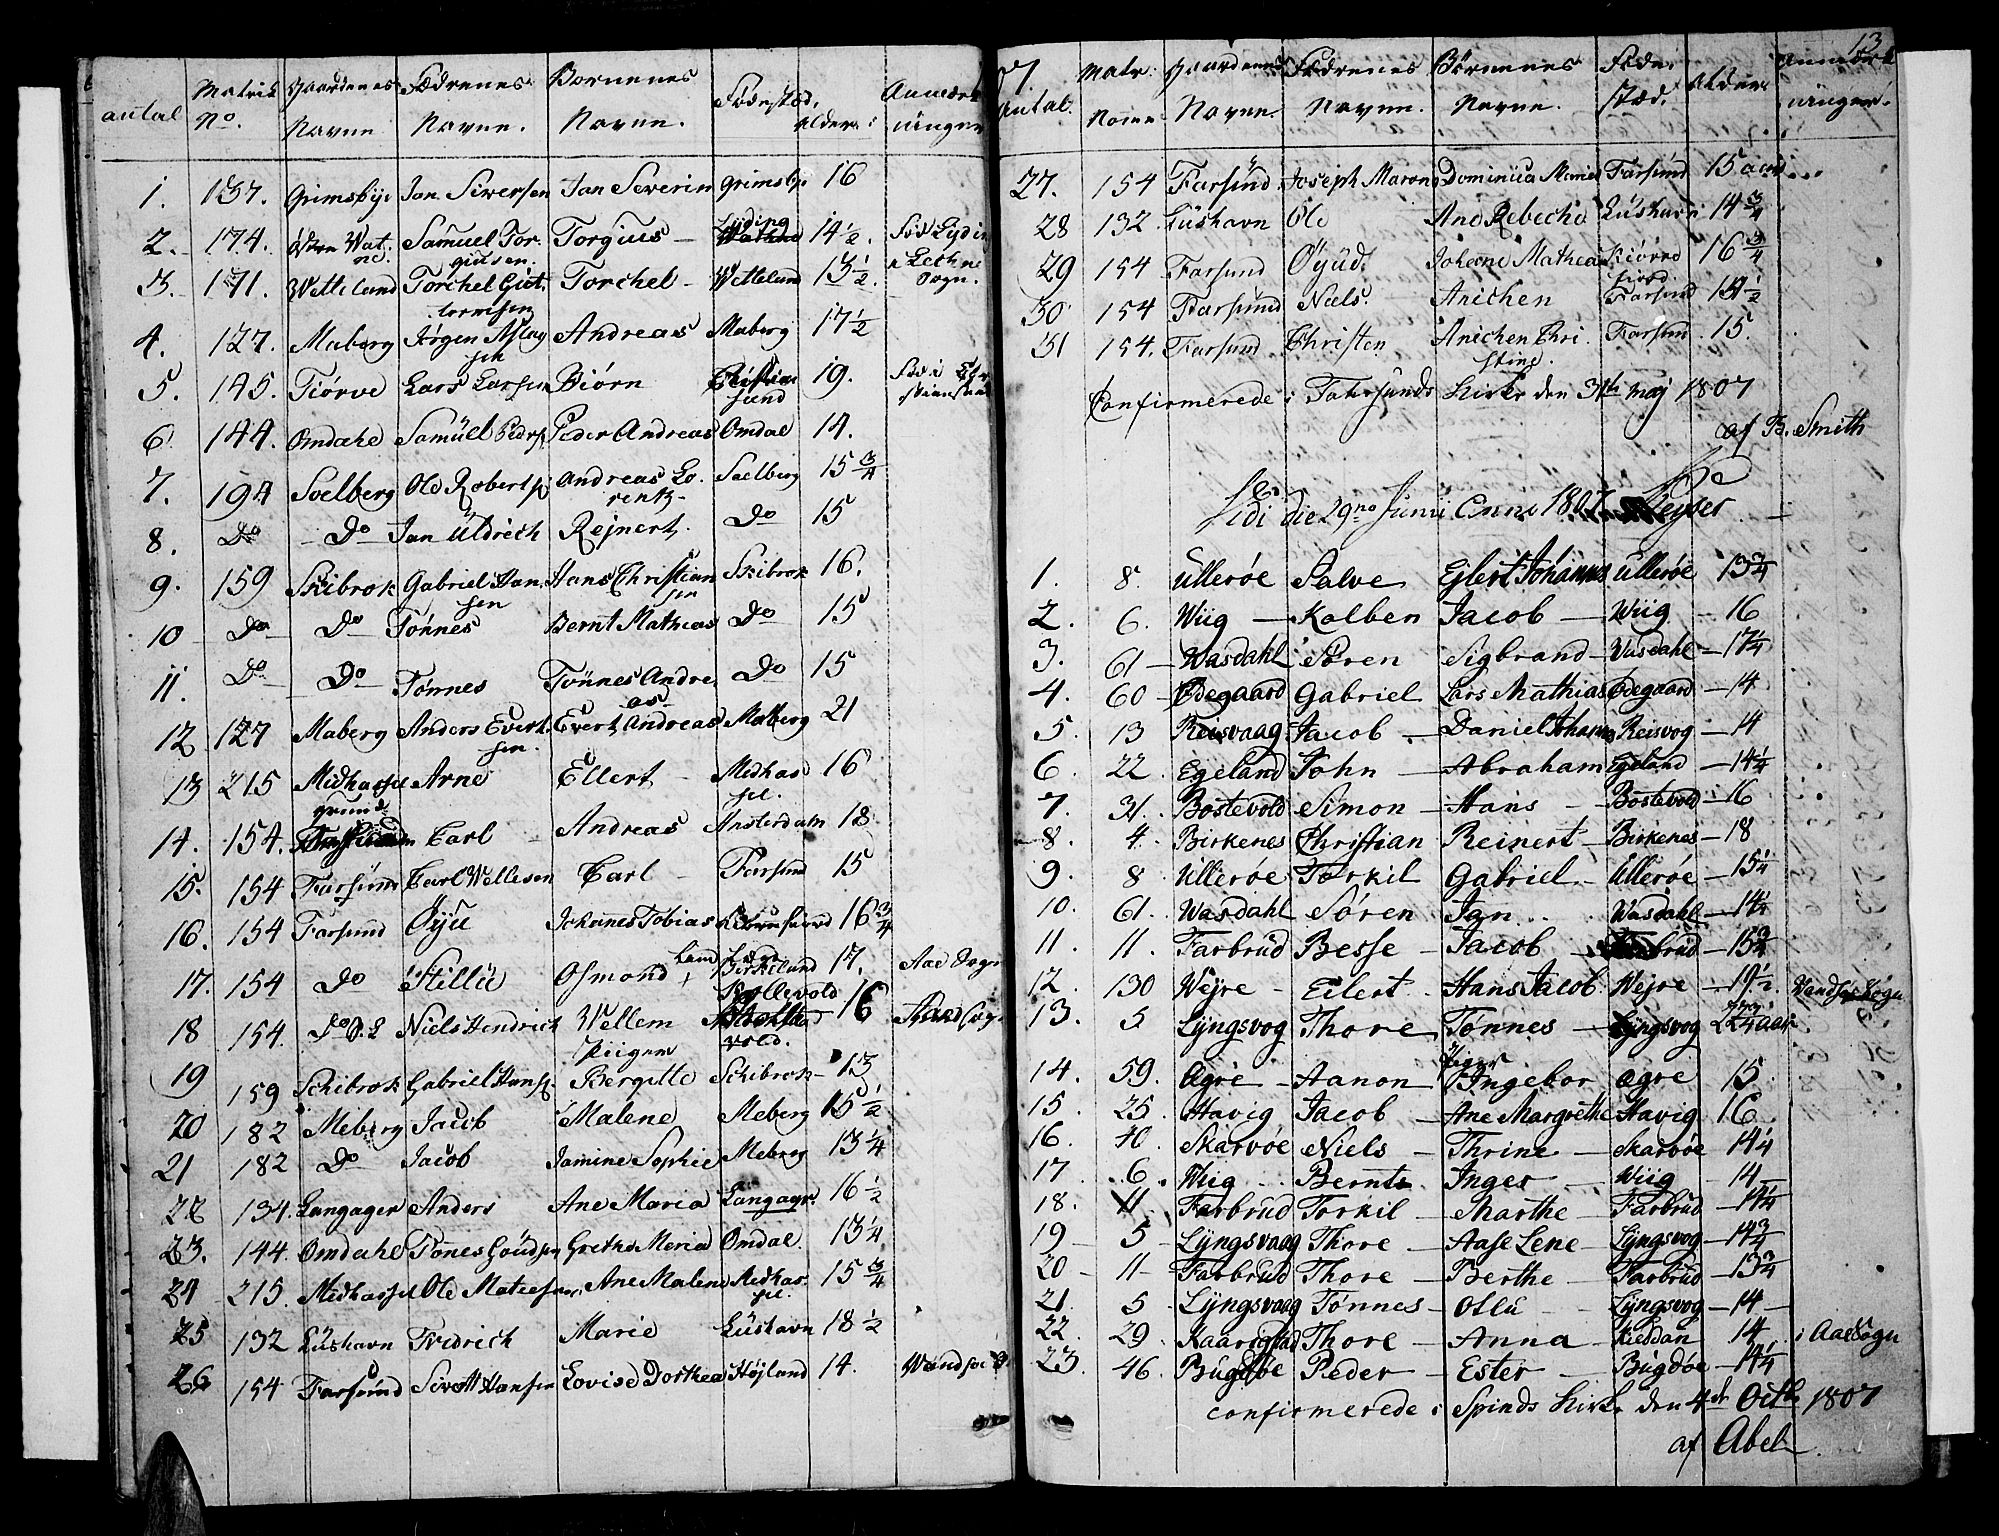 antal Matrik No. Gaardenes Navne Fædrenes Navne. Børnenes Navne. Fødestæd. Alder: Anmærkninger
1. 137. Grimsbÿe Jan Sewersen Jan Severin Grimsbÿ 16
2. 174. Østre Watne Samuel Torgiusen Torgius - Lyding 14 1/2.
3. 171. Wetteland Torchel Guttormsen Torchel - Wetteland 13 1/2. Sogn.
4. 127. Maberg Jørgen Aslagsen Andreas Maberg 17 1/2
5. 145. Tiørve Lars Larsen Biørn Christiansund 19.
6. 144. Omdahl Samüel Peders. Peder Andreas Omdal 14.
7. 194 Soelberg Ole Roberts. Andreas Lorentz- Soelberg 15 3/4
8. Do Do Jan Üldrich Rejnert. Do 15
9. 159 Skibrok Gabriel Hansen Hans Christian Skibrok 16.
10 Do Do Tönnes Bernt Mathias Do 15
11. Do Do Tønnes Tönnes Andreas Do 15
12 127 Maberg Anders Evertsen. Evert Andreas Maberg 21
13 215 Midhassel Arne Ellert - Medhassel. 16
14. 154. Carl - Andreas Amsterdam 18
15. 154 Farsünd Carl Wellesen Carl - Farsund 15
16. 154 Farsund Öyü Johannes Tobias 16 3/4
17. 154 Do Stillü Osmond Birkeland 17. Aae Sogn
18 154. Do Niels Hendrich Wellem 16
Piiger
19 159 Schibrok Gabriel Hans. Bergitte Schibrok- 13
20 182 Meberg Jacob Malene Meberg 15 1/2
21 182 Do Jacob Jamine Sophie Meberg 13 1/4
22 134. Langager Anders Ane Maria Langagr. 16 1/2
23. 144. Omdahl Tønes Gundsen Grethe Meria Omdal. 13 1/4
24 215. Midhassel Ole Ane Malene Medhassel. 15 3/4
25 132 Lüshavn Fredrich Marie Lüshavn 18 1/2
26 154 Farsund Sivert Hansen Lovise Dorthea Højland 14.
13
Antal. Matr: Gaardenes Navne. Fædrenes Navne. Börnenes Navne. Fødestæd. Alder Anmærkninger.
27. 154 Farsünd Joseph Dominica Farsund 15
28 132. Lüshavn Ole Ane Rebecha Lüshavn 14 3/4
29 154 Farsund Öÿud. Johanne Mathea 16 3/4
30 154 Farsünd Niels. Anichen Farsund 14 1/2
31 154. Farsund Christen Anichen Christine. Farsund 15.
Confirmerede i Fahrsunds Kirke den 3die Maj 1807
af B. Smith
Vidi die 29no Junii Anni 1807. Keyser
1. 8. Ullerøe Salve Ejlert Johannes Ullerøe 13 3/4
2. 6. Wiig - Kolben Jacob - Wiig - 16
3. 61 - Wasdahl Søren Sigbrand - Wasdahl - 17 1/4
4. 60 - Ödegaard Gabriel Lars Mathias Ödegaard - 14
5. 13 Reisvaag Jacob - Daniel Johannes Reisvog - 14
6. 22. Egeland John - Abraham Egeland - 14 1/4
7. 31. Bostevold Simon - Hans - Bostevold - 16
8. 4. Birkenes Christian Reinert - Birkenes - 18
9. 8 Ullerøe Torkil Gabriel - Ullerøe - 15 1/4
10. 61. Wasdahl Søren Jan Wasdahl - 14 1/4
11. 11. Farbrud Besse - Jacob - Farbrud - 15 3/4
12. 130 Wejre - Eilert - Hans Jacob Wejre - 19 1/2. Vandsøe Sogn
13. 5 Lyngsvog Thore Tønnes - Lyngsvog
Piger
14. 59. Ogre - Aanon Ingebor Ogre 15
15. 25 Havig Jacob - Ane Margrethe Havig 16
16. 40. Skarvøe Niels - Thrine - Skarvøe 14 1/4
17 6. Wiig Bernt - Inger - Wiig - 14
18. 11. Farbrud Torkil - Marthe - Farbrud - 14 1/4
19 5 - Lyngsvaag Thore - Aase Lene - Lyngsvog - 14 3/4
20 11 - Farbrud Thore - Berthe - Farbrud - 13 3/4
21. 5. Lyngsvaag Tønnes - Ollü - Lyngsvog - 14 -
22. 29. Kaarigstad Thore - Anna - 14 i Aae Sogn
23. 46. Bugdøe Peder - Ester - Bugdøe - 14 1/4
confirmerede i Spinds Kirke den 4de Octb 1807
af Abel